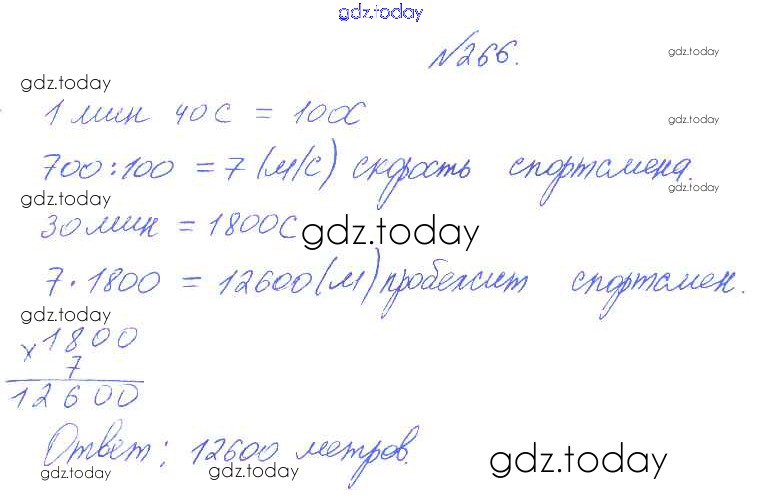 gdz.today
№266.
gdz.today
gdz.today
1 мин 40с = 100с
gdz.today
700:100 = 7 (м/с) скорость спортсмена.
gdz.today
gdz.today
30 мин = 1800с
gdz.today
7·1800 = 12600 (м) пробежит спортсмен.
gdz.today
×1800
7
12600
Ответ: 12600 метров.
gdz.today
gdz.today
gdz.today